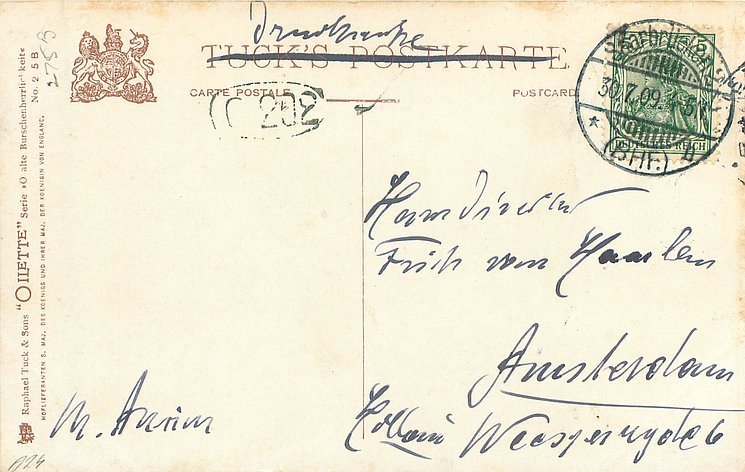 Drucksache
TUCK'S POSTKARTE
CARTE POSTALE
POSTCARD
C 202
Herrn Direktor
Frits van Haarlem
Amsterdam
Holland
M. Anrim
Raphael Tuck & Sons "OILETTE" Serie »O alte Burschenherrlichkeit«
No. 2 5 B
275B
HOFLIEFERANTEN S. MAJ. DES KOENIGS UND IHRER MAJ. DER KOENIGIN VON ENGLAND.
30.7.09.
DEUTSCHES REICH
A24